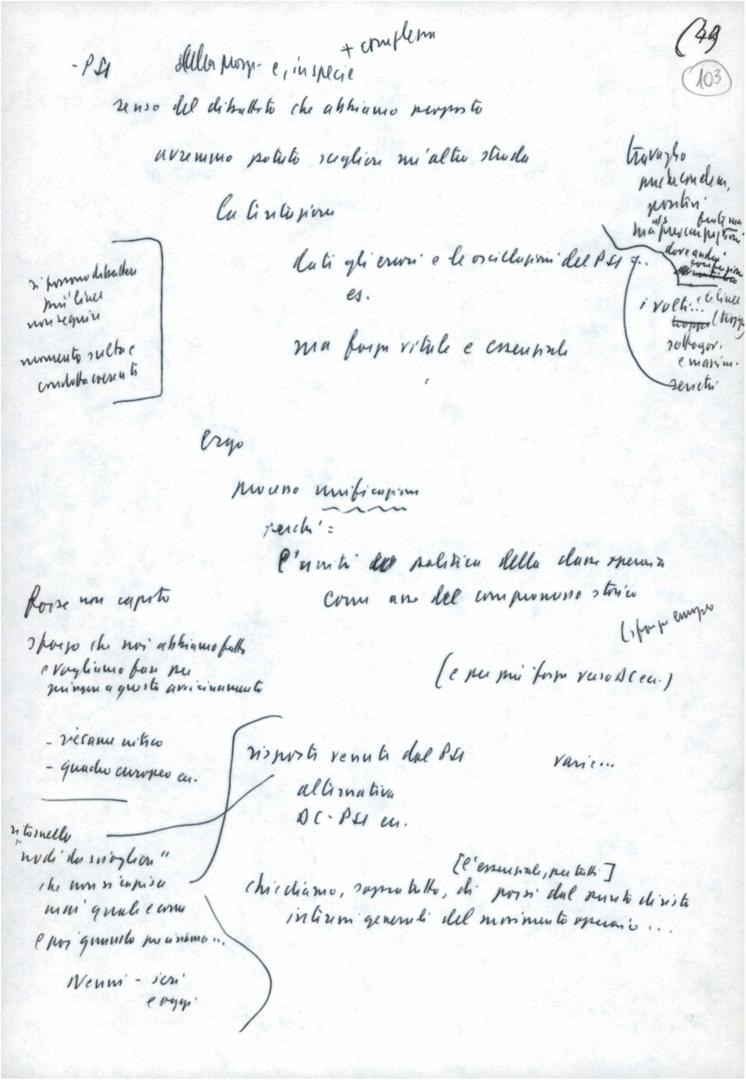 (49
103
+ complessa
- PSI della prop. e, in specie
senso del dibattito che abbiamo proposto
avremmo potuto scegliere un'altra strada
la tentazione
dati gli errori e le oscillazioni del PSI
es.
ma forza vitale e essenziale
travaglio
positivi
ma
dove andare
i volti... e le linee
sottogov.
e massim.
si possono dibattere
più linee
non seguire
momento scelta e
condotta coerenti
ergo
processo unificazione
perché =
l'unità politica della classe operaia
come asse del compromesso storico
(sforzo europeo
(e per più forza verso DC ecc.)
Forse non capito
sforzo che noi abbiamo fatto
e vogliamo fare per
giungere a questo avvicinamento
- riesame critico
- quadro europeo ecc.
risposte venute dal PSI varie...
alternativa
DC-PSI ecc.
ritornello
"nodi da sciogliere"
che non si capisce
mai quali e come
e poi quando
Nenni - ieri
e oggi
[è essenziale, per tutti]
chiediamo, soprattutto, di porsi dal punto di vista
interessi generali del movimento operaio...